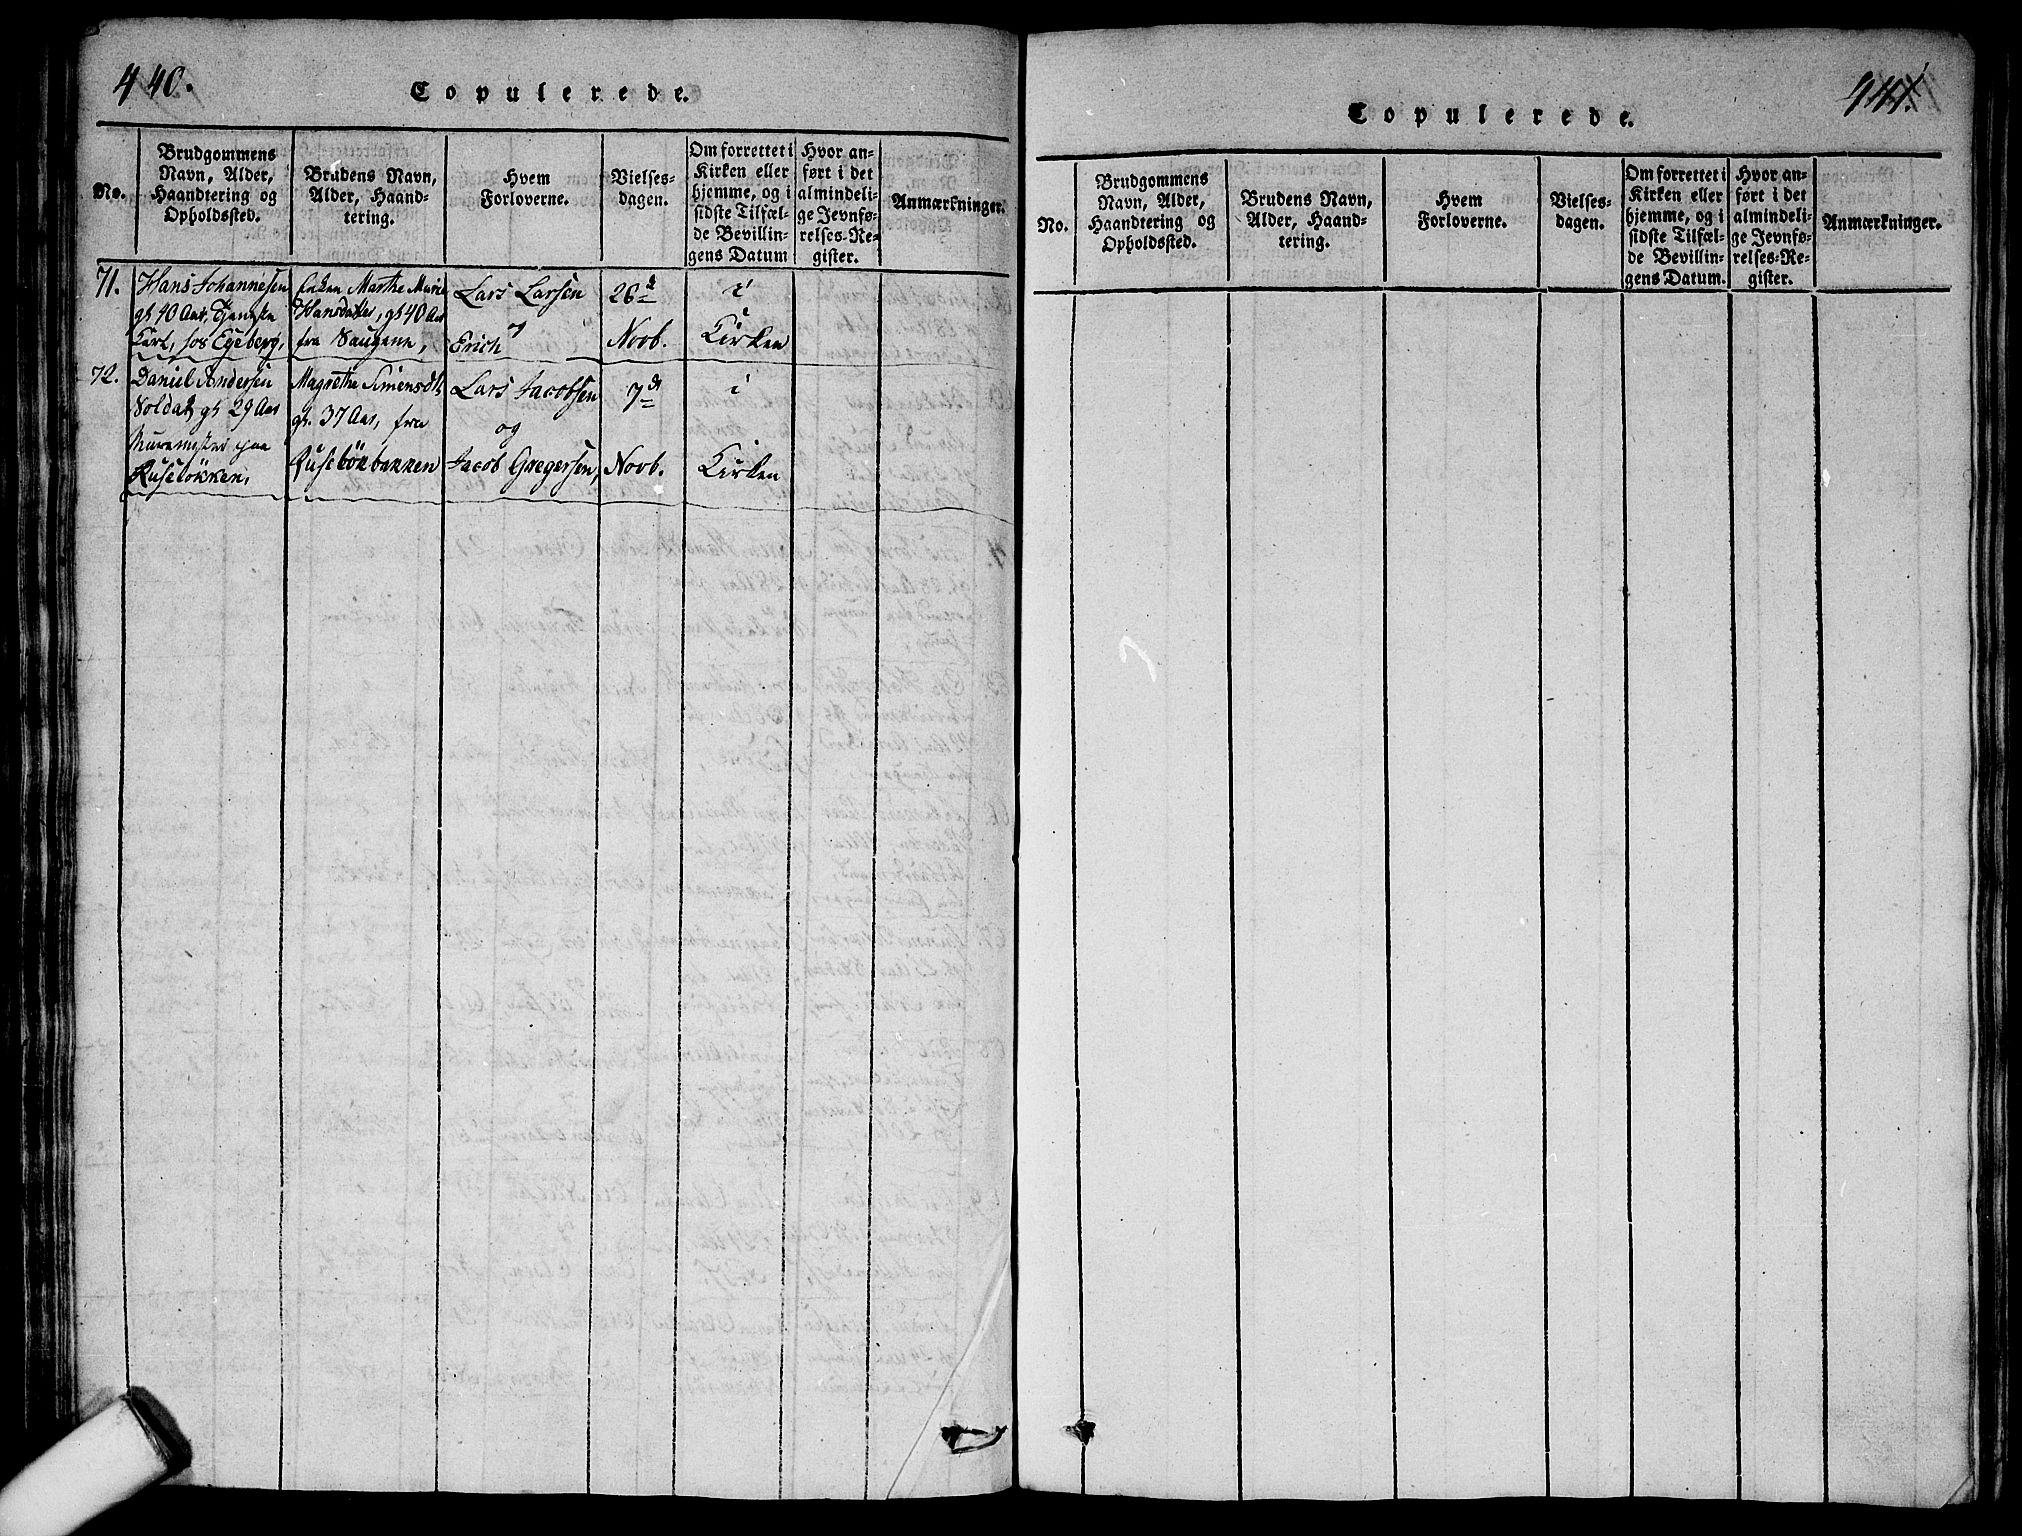 440.
Copulerede.
No.
Brudgommens
Navn, Alder,
Haandtering og
Opholdssted.
Brudens Navn,
Alder, Haand-
tering.
Hvem
Forloverne.
Vielses-
dagen.
Om forrettet i
Kirken eller
hjemme, og i
sidste Tilfæl-
de Bevillin-
gens Datum
Hvor an-
ført i det
almindeli-
ge Jevnfø-
relses-Re-
gister.
Anmærkninger.
71.
Hans Johannesen
gl. 40 Aar, Tjeneste
Karl, hos Egeberg,
Enken Marthe Marie
Hansdatter, gl. 40 Aar
fra Saugene,
Lars Larsen
Erich
26de
Novb.
i
Kirken
72.
Daniel Andersen
Soldat, gl. 29 Aar
Muremester paa
Ruseløkken,
Magrethe Simensdtr
gl. 37 Aar, fra
Ruseløkbakken
Lars Jacobsen
og
Jacob Gregersen,
7de
Novb.
i
Kirken
441.
Copulerede.
No.
Brudgommens
Navn, Alder,
Haandtering og
Opholdssted.
Brudens Navn,
Alder, Haand-
tering.
Hvem
Forloverne.
Vielses-
dagen.
Om forrettet i
Kirken eller
hjemme, og i
sidste Tilfæl-
de Bevillin-
gens Datum.
Hvor an-
ført i det
almindeli-
ge Jevnfø-
relses-Re-
gister.
Anmærkninger.